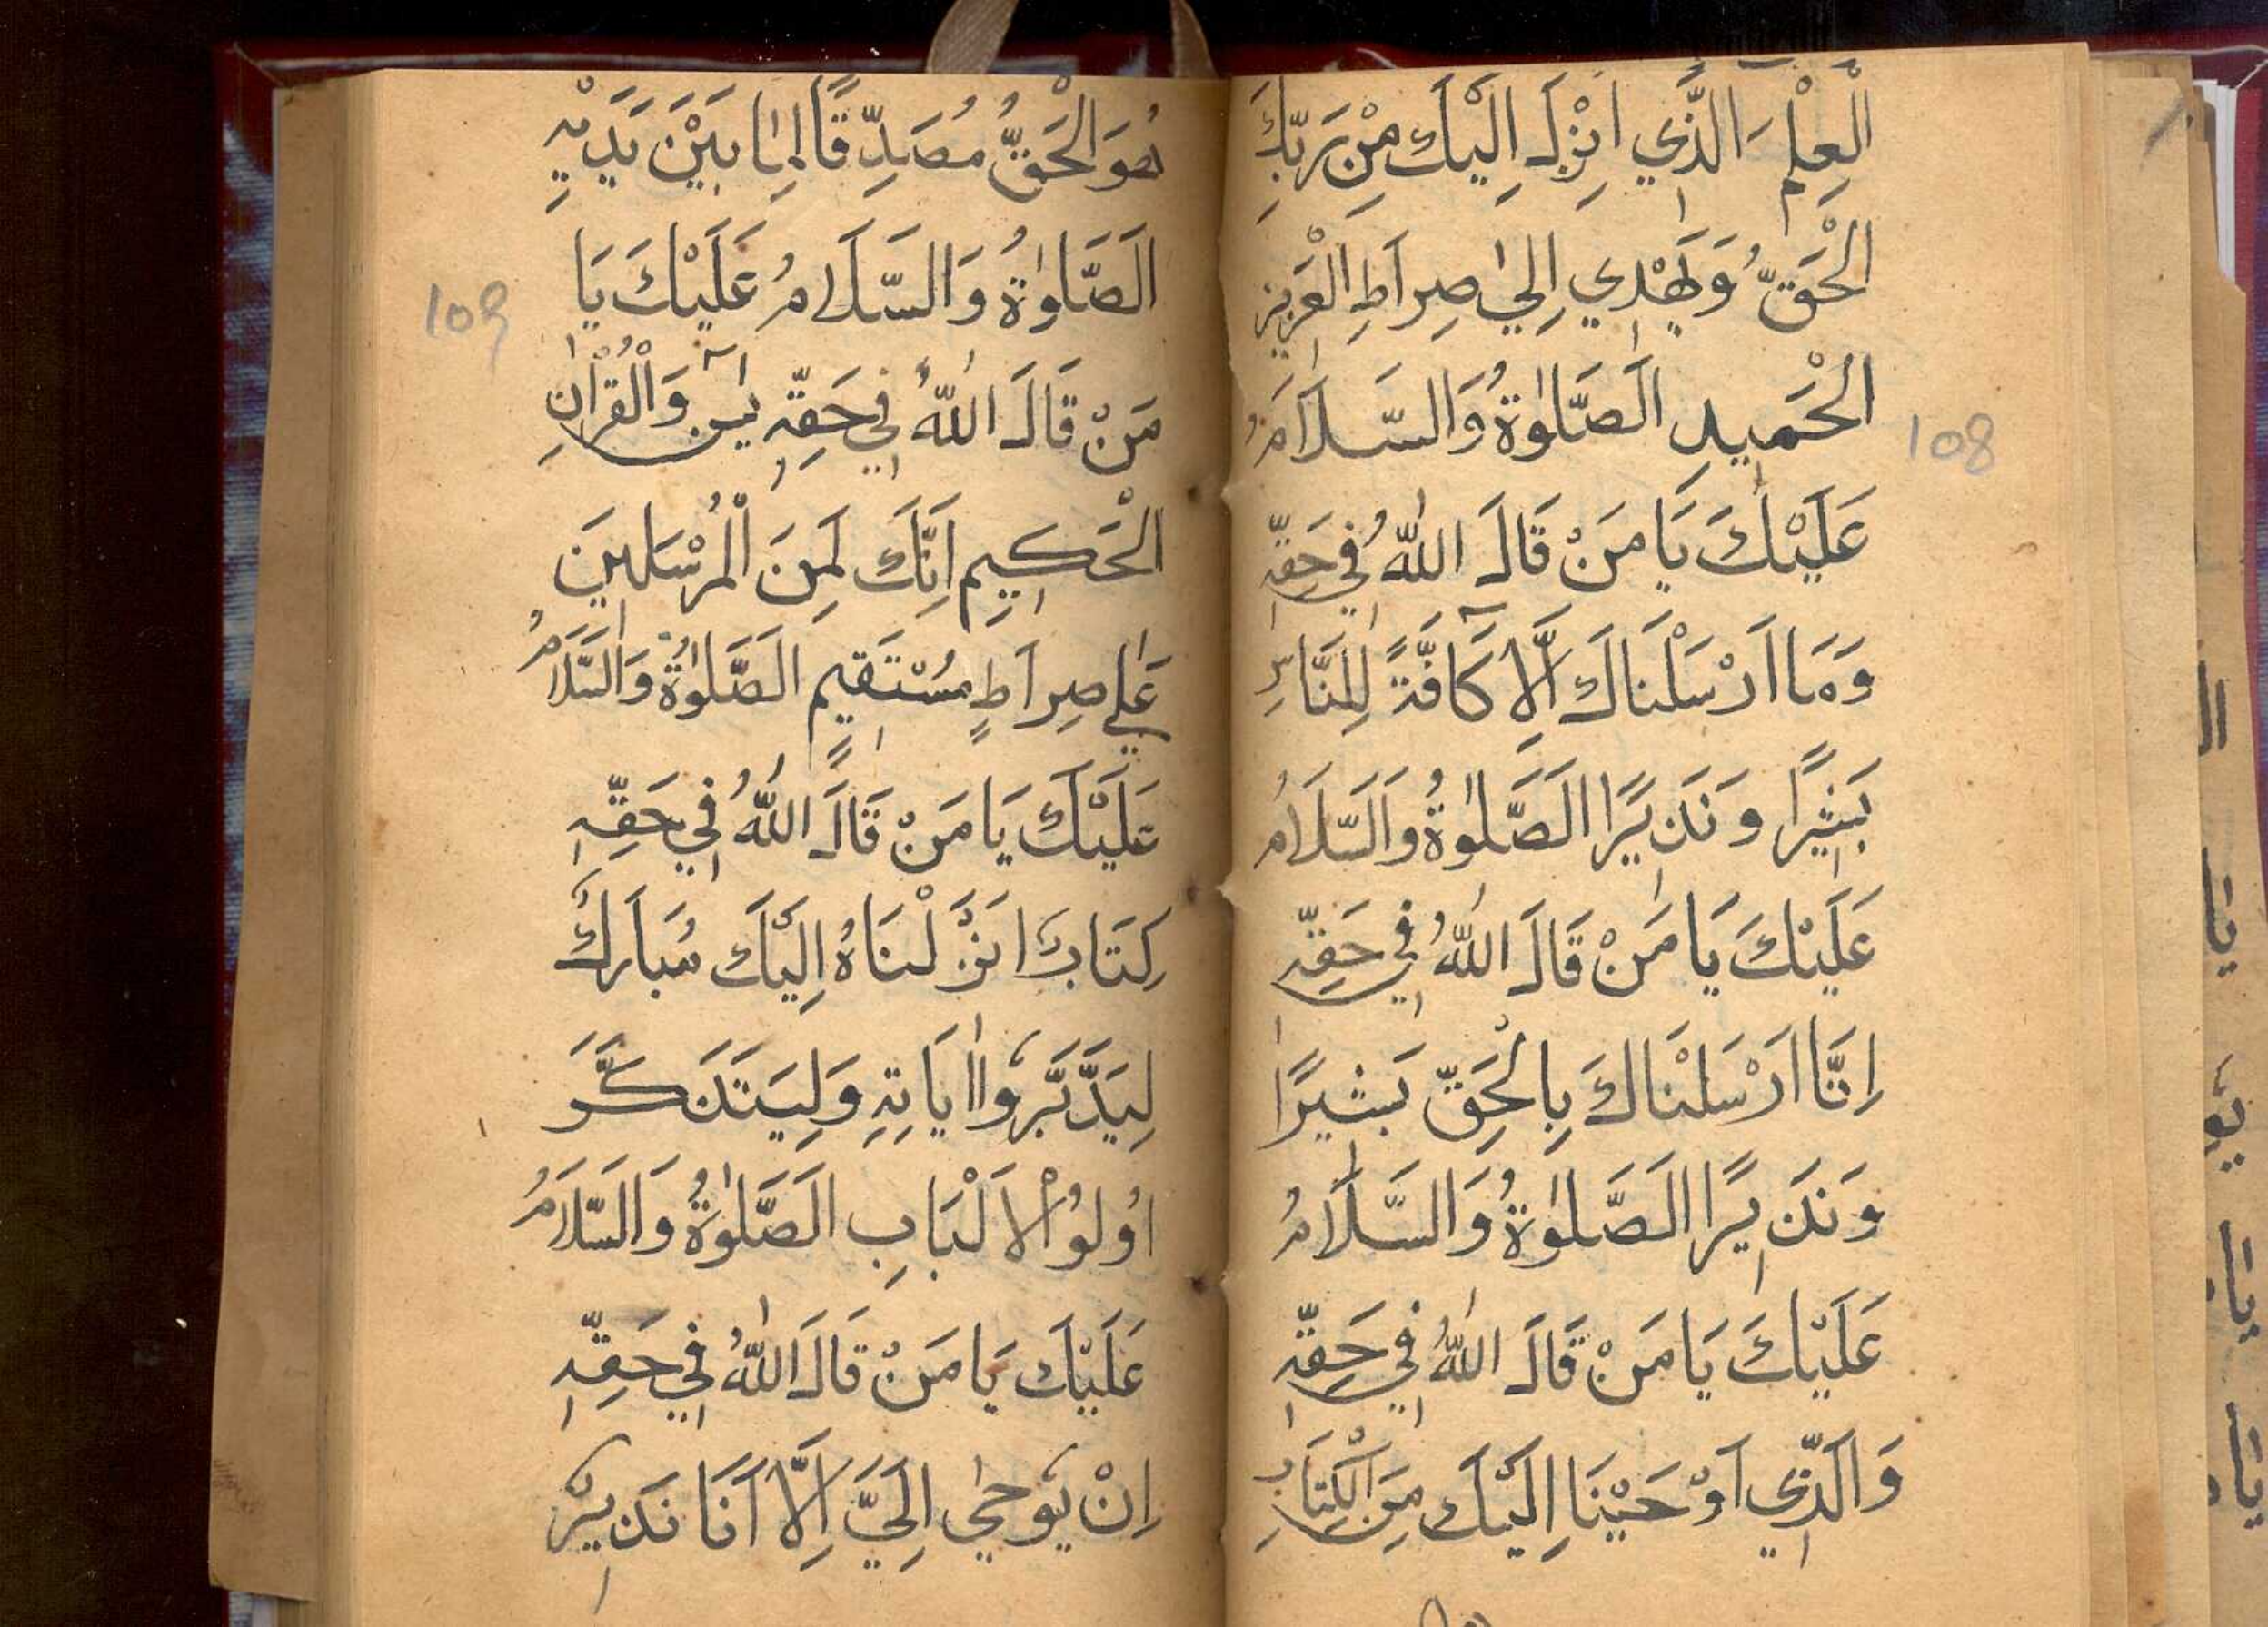 الْعِلْمَ الَّذِي اُنْزِلَ اِلَيْكَ مِنْ رَبِّكَ
الْحَقُّ وَيَهْدِي اِلَىٰ صِرَاطِ الْعَزِيزِ
الْحَمِيدِ اَلصَّلٰوةُ وَالسَّلَامُ
عَلَيْكَ يَا مَنْ قَالَ اللّٰهُ فِي حَقِّهِ
وَمَا اَرْسَلْنَاكَ اِلَّا كَافَّةً لِلنَّاسِ
بَشِيرًا وَنَذِيرًا اَلصَّلٰوةُ وَالسَّلَامُ
عَلَيْكَ يَا مَنْ قَالَ اللّٰهُ فِي حَقِّهِ
اِنَّا اَرْسَلْنَاكَ بِالْحَقِّ بَشِيرًا
وَنَذِيرًا اَلصَّلٰوةُ وَالسَّلَامُ
عَلَيْكَ يَا مَنْ قَالَ اللّٰهُ فِي حَقِّهِ
وَالَّذِي اَوْحَيْنَا اِلَيْكَ مِنَ الْكِتَابِ
108
هُوَ الْحَقُّ مُصَدِّقًا لِمَا بَيْنَ يَدَيْهِ
اَلصَّلٰوةُ وَالسَّلَامُ عَلَيْكَ يَا
مَنْ قَالَ اللّٰهُ فِي حَقِّهِ يٰسٓ وَالْقُرْاٰنِ
الْحَكِيمِ اِنَّكَ لَمِنَ الْمُرْسَلِينَ
عَلٰي صِرَاطٍ مُسْتَقِيمٍ اَلصَّلٰوةُ وَالسَّلَامُ
عَلَيْكَ يَا مَنْ قَالَ اللّٰهُ فِي حَقِّهِ
كِتَابٌ اَنْزَلْنَاهُ اِلَيْكَ مُبَارَكٌ
لِيَدَّبَّرُوا اٰيَاتِهِ وَلِيَتَذَكَّرَ
اُولُوا الْاَلْبَابِ اَلصَّلٰوةُ وَالسَّلَامُ
عَلَيْكَ يَا مَنْ قَالَ اللّٰهُ فِي حَقِّهِ
اِنْ يُوحٰي اِلَيَّ اِلَّا اَنَا نَذِيرٌ
109